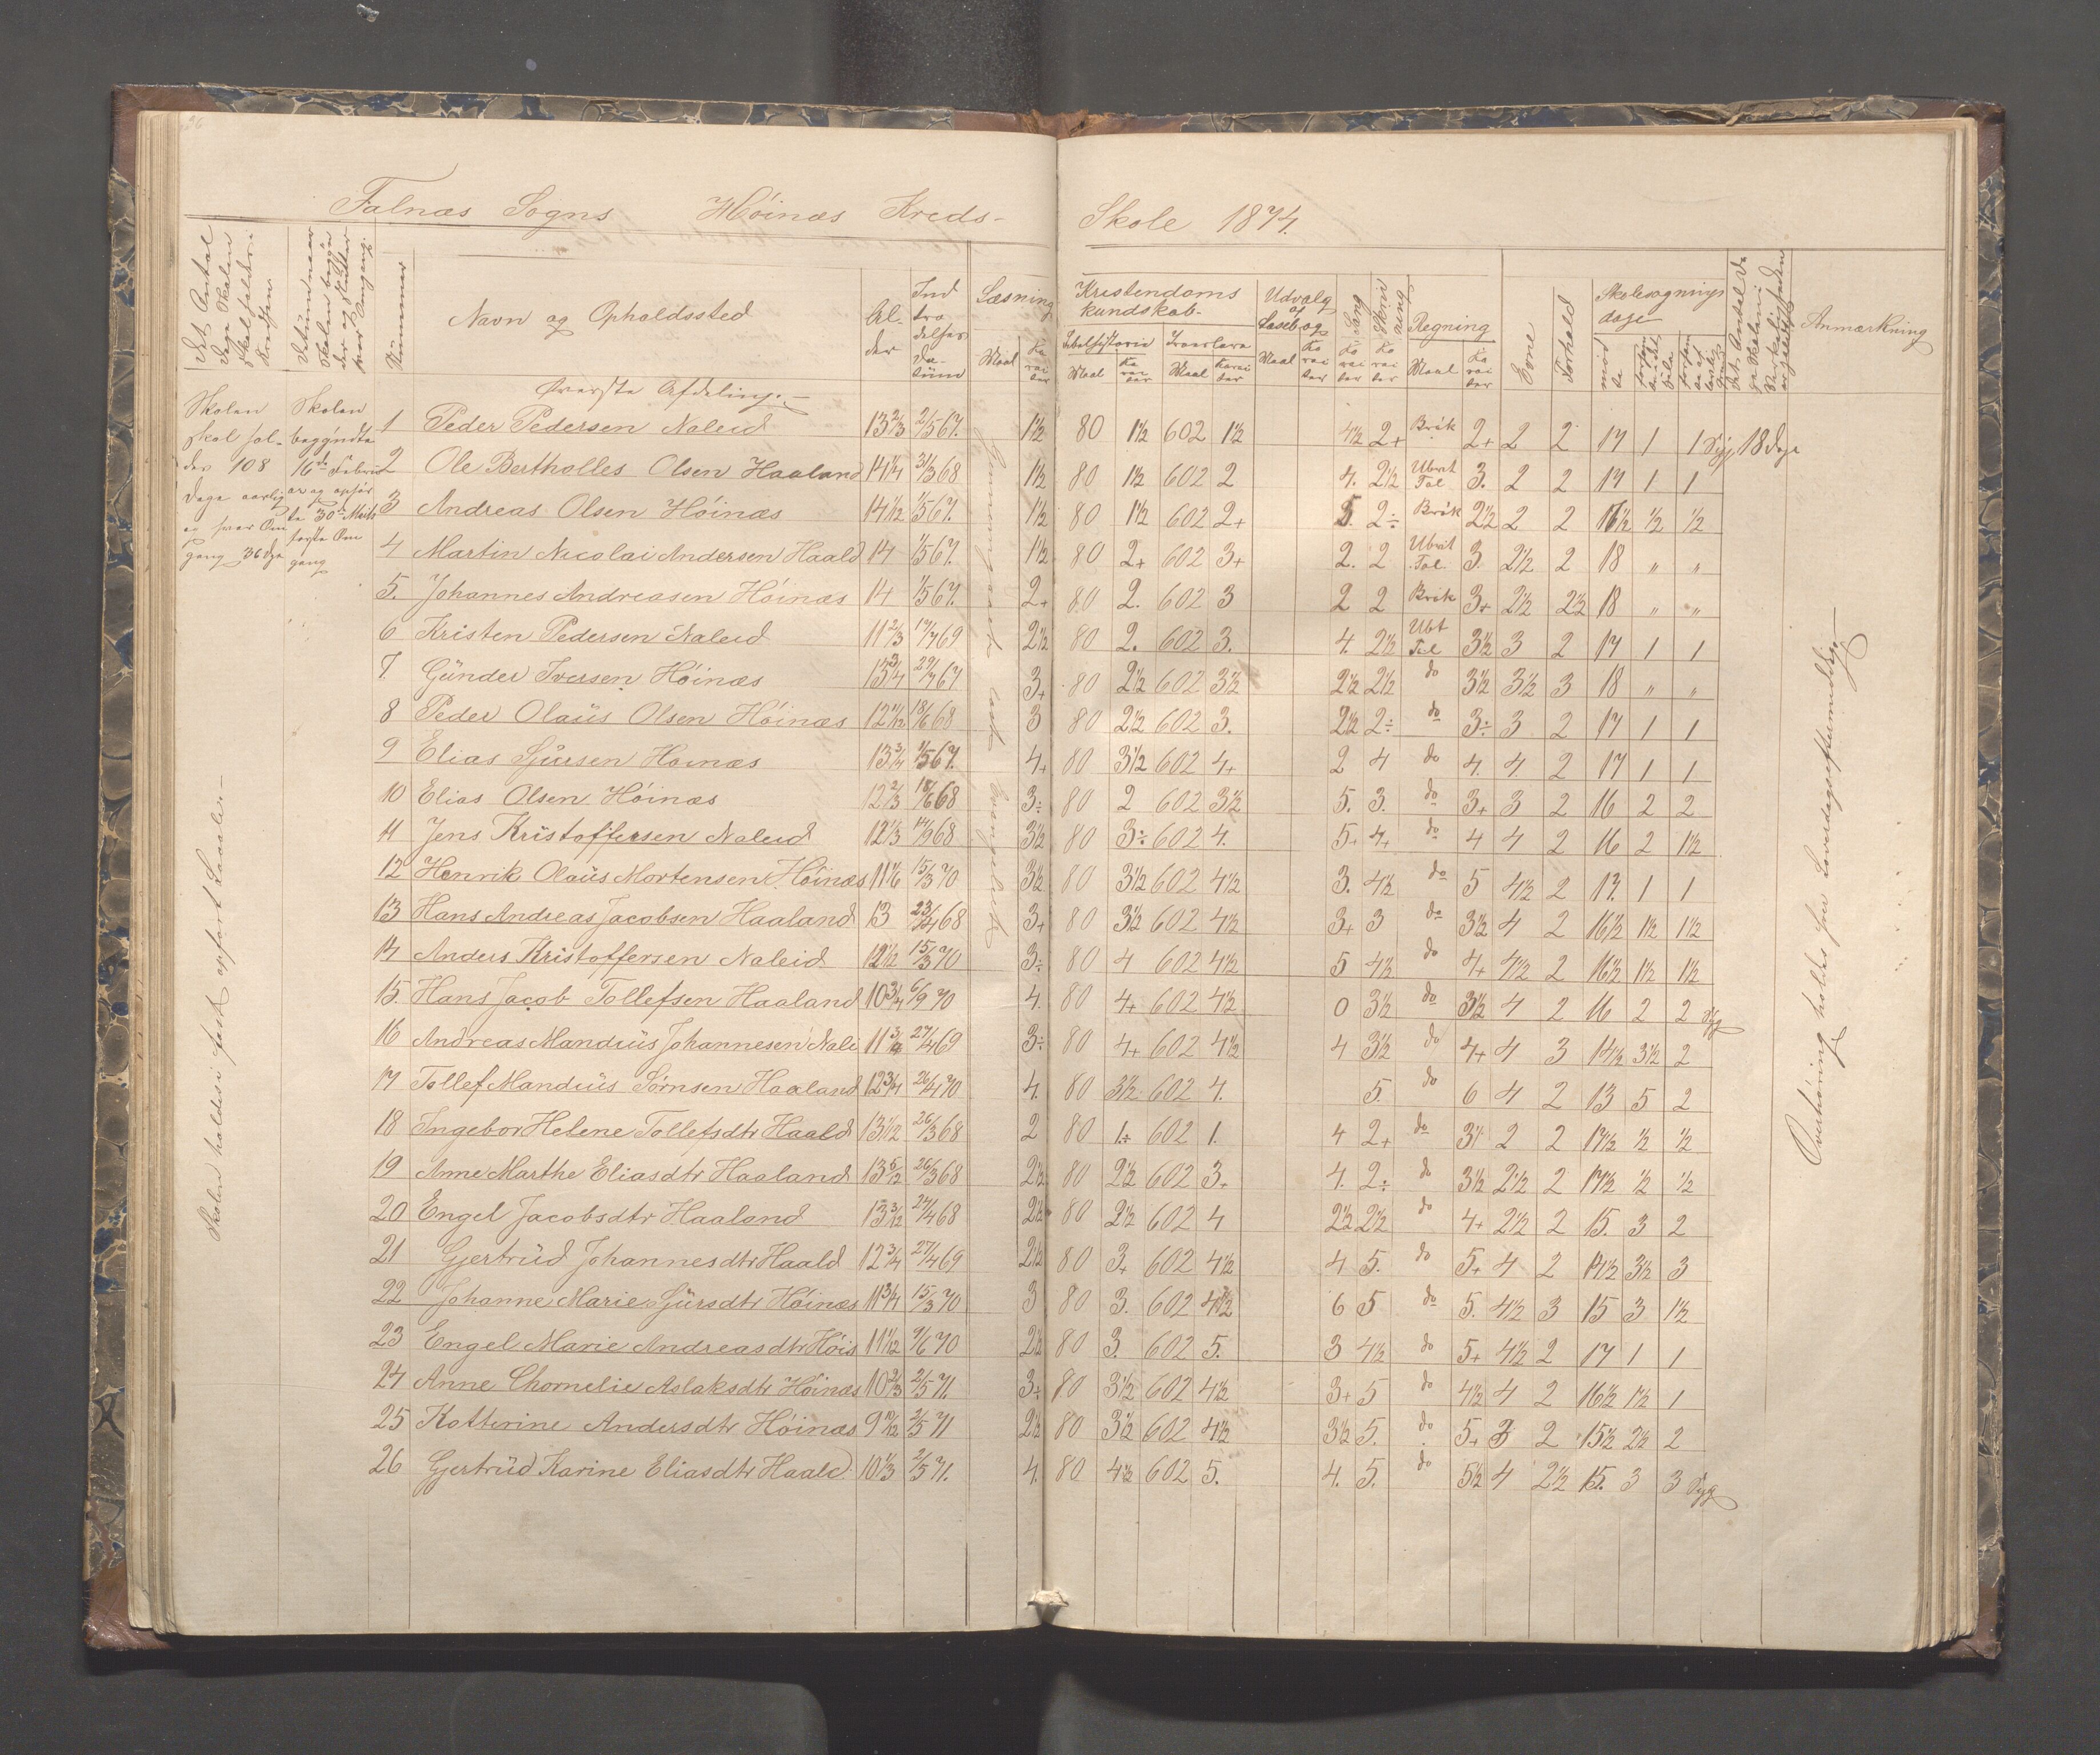 Falnæs Sogns Höinæs Kreds-
Skole 1874.
Det Antal Dage Skolen skal holdes i Kredsen
Datum naar Skolen begyn der og slutter hver Omgang.
Nummer
Navn og Opholdssted
Al- der
Ind tra delses da- tum
Læsning
Maal
Ka rak ter
Kristendoms kundskab-
Bibelhistorie
Troeslære
Maal
Ka rak ter
Maal
Karak ter
Udvalg af Læsebog
Maal
Ka rak ter
Sang
Ka rak ter
Skriv ning
Ka rak ter
Regning
Maal
Ka rak ter
Evne
Forhold
Skolesøgnings dage
mød te
Det Antal Da ge Skolen i Virkeligheden er holdt
Anmærkning
Øverste Afdeling.-
Skolen skal hol- des 108 Dage aarlig og hver Om gang 36 Dge
Skolen begyndte 16de Februar og ophør te 30te Marts første Om gang
1 Peder Pedersen Naleid 13 2/3 2/5 67. 1½ 80 1½ 602 1½ 4½ 2+ Brök 2+ 2 2 17 1 1 syg 18 dage
2 Ole Bertholles Olsen Haaland 14 1/4 31/3 68 1½ 80 1½ 602 2 4. 2½ Ubvt Tal 3. 2 2 17 1 1
3 Andreas Olsen Höinæs 14 1/12 1/5 67. 1½ 80 1½ 602 2+ 5. 2÷ Brök 2½ 2 2 16½ ½ ½
4 Martin Nicolai Andersen Haald 14 1/5 67. 1½ 80 2+ 602 3+ 2. 2 Ubvt Tal. 3. 2½ 2 18 " "
5. Johannes Andreasen Höinæs 14 1/5 67. 2+ 80 2. 602 3 2 2 Brök 3+ 2½ 2½ 18 " "
6 Kristen Pedersen Naleid 11 2/3 17/7 69 2½ 80 2. 602 3. 4. 2½ Ubt Tal 3½ 3 2 17 1 1
7. Günder Iversen Höinæs 13 3/4 29/7 67 3+ 80 2½ 602 3½ 2½ 2½ do 3½ 3½ 3 18 " "
8 Peder Olaüs Olsen Höinæs 12 11/12 18/6 68 3 80 2½ 602 3. 2½ 2÷ do 3÷ 3 2 17 1 1
9 Elias Sjursen Hoinæs 13 3/4 1/5 67. 4+ 80 3½ 602 4+ 2 4 do 4. 4 2 17 1 1
10 Elias Olsen Höinæs 12 2/3 18/6 68 3÷ 80 2 602 3½ 5. 3. do 3+ 3 2 16 2 2
11 Jens Kristoffersen Naleid 12 1/3 14/9 68 3½ 80 3÷ 602 4. 5+ 4+ do 4 4 2 16 2 1½
12 Henrik Olaüs Mortensen Höinæs 11 1/6 15/3 70 3½ 80 3½ 602 4½ 3. 4½ do 5 4½ 2 17. 1 1
13 Hans Andreas Jacobsen Haaland 13 23/4 68 3+ 80 3½ 602 4½ 3+ 3 do 3½ 4 2 16½ 1½ 1½
14 Anders Kristoffersen Naleid 12 1/2 15/3 70 3÷ 80 4 602 4½ 5 4½ do 4+ 4½ 2 16½ 1½ 1½
15. Hans Jacob Tollefsen Haaland 10 3/4 6/9 70 4. 80 4+ 602 4½ 0 3½ do 3½ 4 2 16 2 2 syg
16 Andreas Mandius Johannesen Nale 11 3/4 27/4 69 3÷ 80 4+ 602 4½ 4 3½ do 4+ 4 3 14½ 3½ 2
17 Tollef Mandüs Sörnsen Haaland 12 3/4 26/4 70 4. 80 3½ 602 4. 5. do 6 4 2 13 5 2
18 Ingebor Helene Tollefsdtr Haald 13 1/12 26/3 68 2 80 1÷ 602 1. 4 2+ do 3½ 2 2 17½ ½ ½
19 Anne Marthe Eliasdtr Haaland 13 5/12 26/3 68 2½ 80 2½ 602 3+ 4. 2÷ do 3½ 2½ 2 17½ ½ ½
20 Engel Jacobsdtr Haaland 13 3/12 27/4 68 2½ 80 2½ 602 4 2½ 2½ do 4+ 2½ 2 15. 3 2
21 Gjertrüd Johannesdtr Haald 12 3/4 27/4 69 2½ 80 3+ 602 4½ 4 5. do 5+ 4 2 14½ 3½ 3
22 Johanne Marie Sjürsdtr Höinæs 11 3/4 15/3 70 3 80 3. 602 4½ 6 5 do 5. 4½ 3 15 3 1½
23 Engel Marie Andreasdtr Höis 11 1/12 9/6 70 2½ 80 3. 602 5. 3 4½ do 5+ 4½ 2 17 1 1
24 Anne Chornelie Aslaksdtr Höinæs 10 2/3 2/5 71. 3÷ 80 3½ 602 4½ 3+ 5 do 4½ 4 2 16½ 1½ 1
25 Kotterine Andersdtr Höinæs 9 10/12 2/5 71 2½ 80 3½ 602 4½ 3½ 5. do 5+ 3 2 15½ 2½ 2
26 Gjertrüd Karine Eliasdtr Haald 10 1/3 2/5 71. 4. 80 4½ 602 5. 4. 5. do 5½ 4 2½ 15. 3 3 Syg
Skolen holdes i fast opført Locale.-
Overhöring holdes hver Løverdageftermiddag.-